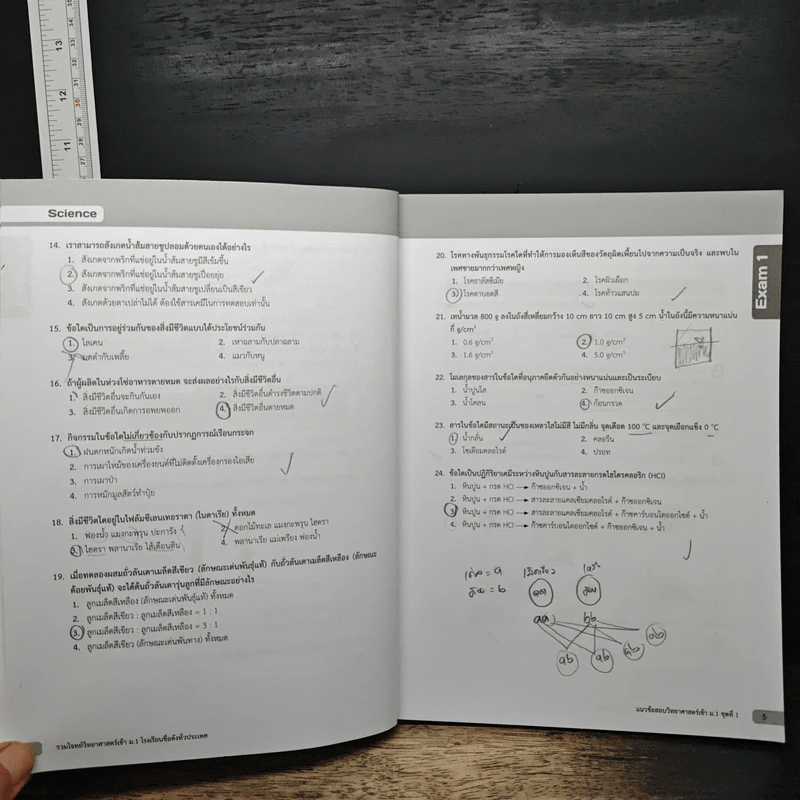 13
12
11
Science
14. เราสามารถสังเกตน้ำส้มสายชูปลอมด้วยตนเองได้อย่างไร
1. สังเกตจากพริกที่แช่อยู่ในน้ำส้มสายชูมีสีเข้มขึ้น
2. สังเกตจากพริกที่แช่อยู่ในน้ำส้มสายชูเปื่อยยุ่ย
3. สังเกตจากพริกที่แช่อยู่ในน้ำส้มสายชูเปลี่ยนเป็นสีเขียว
4. สังเกตด้วยตาเปล่าไม่ได้ ต้องใช้สารเคมีในการทดสอบเท่านั้น
15. ข้อใดเป็นการอยู่ร่วมกันของสิ่งมีชีวิตแบบได้ประโยชน์ร่วมกัน
1. ไลเคน 2. เหาฉลามกับปลาฉลาม
3. มดดำกับเพลี้ย 4. แมวกับหนู
16. ถ้าผู้ผลิตในห่วงโซ่อาหารตายหมด จะส่งผลอย่างไรกับสิ่งมีชีวิตอื่น
1. สิ่งมีชีวิตอื่นจะกินกันเอง 2. สิ่งมีชีวิตอื่นดำรงชีวิตตามปกติ
3. สิ่งมีชีวิตอื่นเกิดการอพยพออก 4. สิ่งมีชีวิตอื่นตายหมด
17. กิจกรรมในข้อใดไม่เกี่ยวข้องกับปรากฏการณ์เรือนกระจก
1. ฝนตกหนักเกิดน้ำท่วมขัง
2. การเผาไหม้ของเครื่องยนต์ที่ไม่ติดตั้งเครื่องกรองไอเสีย
3. การเผาป่า
4. การหมักมูลสัตว์ทำปุ๋ย
18. สิ่งมีชีวิตใดอยู่ในไฟลัมซีเลนเทอราตา (ไนดาเรีย) ทั้งหมด
1. ฟองน้ำ แมงกะพรุน ปะการัง 2. ดอกไม้ทะเล แมงกะพรุน ไฮดรา
3. ไฮดรา พลานาเรีย ไส้เดือนดิน 4. พลานาเรีย แม่เพรียง ฟองน้ำ
19. เมื่อทดลองผสมถั่วลันเตาเมล็ดสีเขียว (ลักษณะเด่นพันธุ์แท้) กับถั่วลันเตาเมล็ดสีเหลือง (ลักษณะ
ด้อยพันธุ์แท้) จะได้ต้นถั่วลันเตารุ่นลูกที่มีลักษณะอย่างไร
1. ลูกเมล็ดสีเหลือง (ลักษณะเด่นพันธุ์แท้) ทั้งหมด
2. ลูกเมล็ดสีเขียว : ลูกเมล็ดสีเหลือง = 1 : 1
3. ลูกเมล็ดสีเขียว : ลูกเมล็ดสีเหลือง = 3 : 1
4. ลูกเมล็ดสีเขียว (ลักษณะเด่นพันทาง) ทั้งหมด
รวมโจทย์วิทยาศาสตร์เข้า ม.1 โรงเรียนชื่อดังทั่วประเทศ
Exam 1
20. โรคทางพันธุกรรมโรคใดที่ทำให้การมองเห็นสีของวัตถุผิดเพี้ยนไปจากความเป็นจริง และพบใน
เพศชายมากกว่าเพศหญิง
1. โรคธาลัสซีเมีย 2. โรคผิวเผือก
3. โรคตาบอดสี 4. โรคท้าวแสนปม
21. เทน้ำมวล 800 g ลงในถังสี่เหลี่ยมกว้าง 10 cm ยาว 10 cm สูง 5 cm น้ำในถังนี้มีความหนาแน่น
กี่ g/cm³
1. 0.6 g/cm³ 2. 1.0 g/cm³
3. 1.6 g/cm³ 4. 5.0 g/cm³
22. โมเลกุลของสารในข้อใดที่อนุภาคยึดตัวกันอย่างหนาแน่นและเป็นระเบียบ
1. น้ำปูนใส 2. ก๊าซออกซิเจน
3. น้ำโคลน 4. ก้อนกรวด
23. สารในข้อใดมีสถานะเป็นของเหลวใสไม่มีสี ไม่มีกลิ่น จุดเดือด 100 °C และจุดเยือกแข็ง 0 °C
1. น้ำกลั่น 2. คลอรีน
3. โซเดียมคลอไรด์ 4. ปรอท
24. ข้อใดเป็นปฏิกิริยาเคมีระหว่างหินปูนกับสารละลายกรดไฮโดรคลอริก (HCl)
1. หินปูน + กรด HCl → ก๊าซออกซิเจน + น้ำ
2. หินปูน + กรด HCl → สารละลายแคลเซียมคลอไรด์ + ก๊าซออกซิเจน
3. หินปูน + กรด HCl → สารละลายแคลเซียมคลอไรด์ + ก๊าซคาร์บอนไดออกไซด์ + น้ำ
4. หินปูน + กรด HCl → ก๊าซคาร์บอนไดออกไซด์ + ก๊าซออกซิเจน + น้ำ
= a
= b
aa bb
ab ab ab ab
แนวข้อสอบวิทยาศาสตร์เข้า ม.1 ชุดที่ 1 5